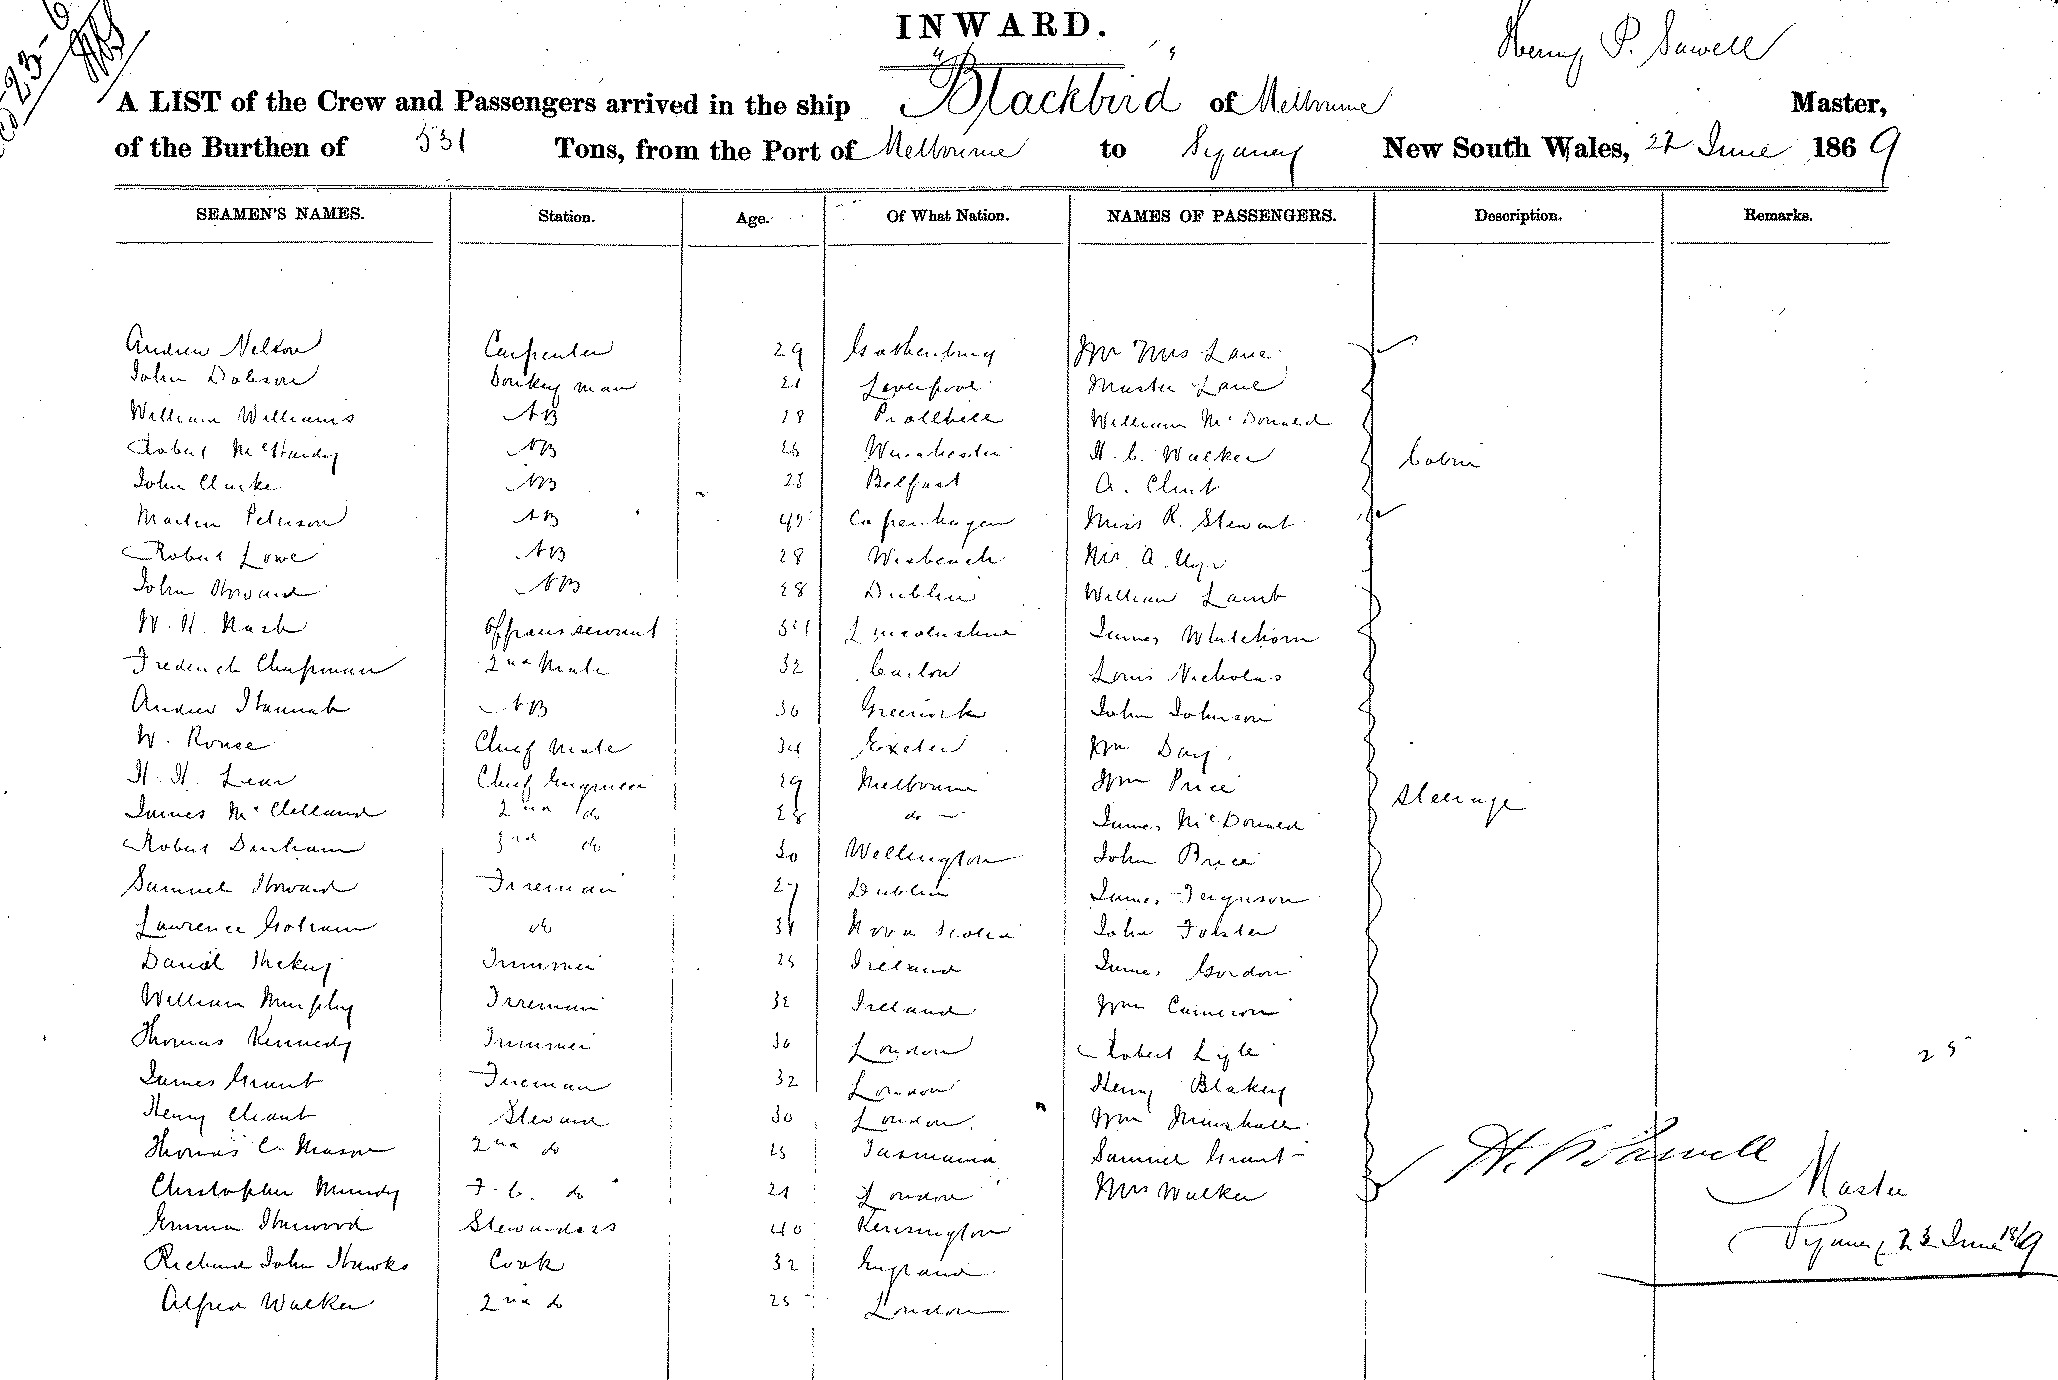 INWARD.
Henry P. Sawell
A LIST of the Crew and Passengers arrived in the ship "Blackbird" of Melbourne Master,
of the Burthen of 531 Tons, from the Port of Melbourne to Sydney New South Wales, 22 June 1869
SEAMEN'S NAMES. Station. Age. Of What Nation. NAMES OF PASSENGERS. Description. Remarks.
Andrew Nelson Carpenter 29 Gothenburg Mr Mrs Lane
John Dobson Donkey man 21 Liverpool Master Lane
William Williams AB 28 William McDonald
Robert McHardy AB 26 Winchester H. C. Walker Cabin
John Clarke AB 28 Belfast A. Clint
Martin Peterson AB 42 Copenhagen Miss R. Stewart
Robert Lowe AB 28 Wisbeach Mr. A.
John Howard AB 28 Dublin William Lamb
W. H. Nash servant Lincolnshire James Whitehorn
Frederick Chapman 2nd Mate 32 Carlow Louis Nicholas
Andrew Hannah AB 36 Greenock John Johnson
W. Rouse Chief Mate 34 Exeter Wm Day.
H. H. Lear Chief Engineer 29 Melbourne Wm Price Steerage
James McClelland 2nd do 28 do James McDonald
Robert Dunham 3rd do 30 Wellington John Price
Samuel Howard Fireman 27 Dublin James Ferguson
Lawrence Gotham do 34 Nova Scotia John Forster
Daniel Hickey Trimmer 25 Ireland James Gordon
William Murphy Fireman 32 Ireland Wm Cameron
Thomas Kennedy Trimmer 36 London Robert Lyle 25
James Grant Fireman 32 London Henry Blakey
Henry Chant Steward 30 London. Wm Minshall
Thomas C. Mason 2nd do 25 Tasmania Samuel Grant H. P. Sawell
Christopher Mundy F. C. do 21 London Mrs Walker Master
Emma Harwood Stewardess 40 Kensington Sydney 23 June 1869
Richard John Hawks Cook 32 England
Alfred Walker 2nd do 25 London